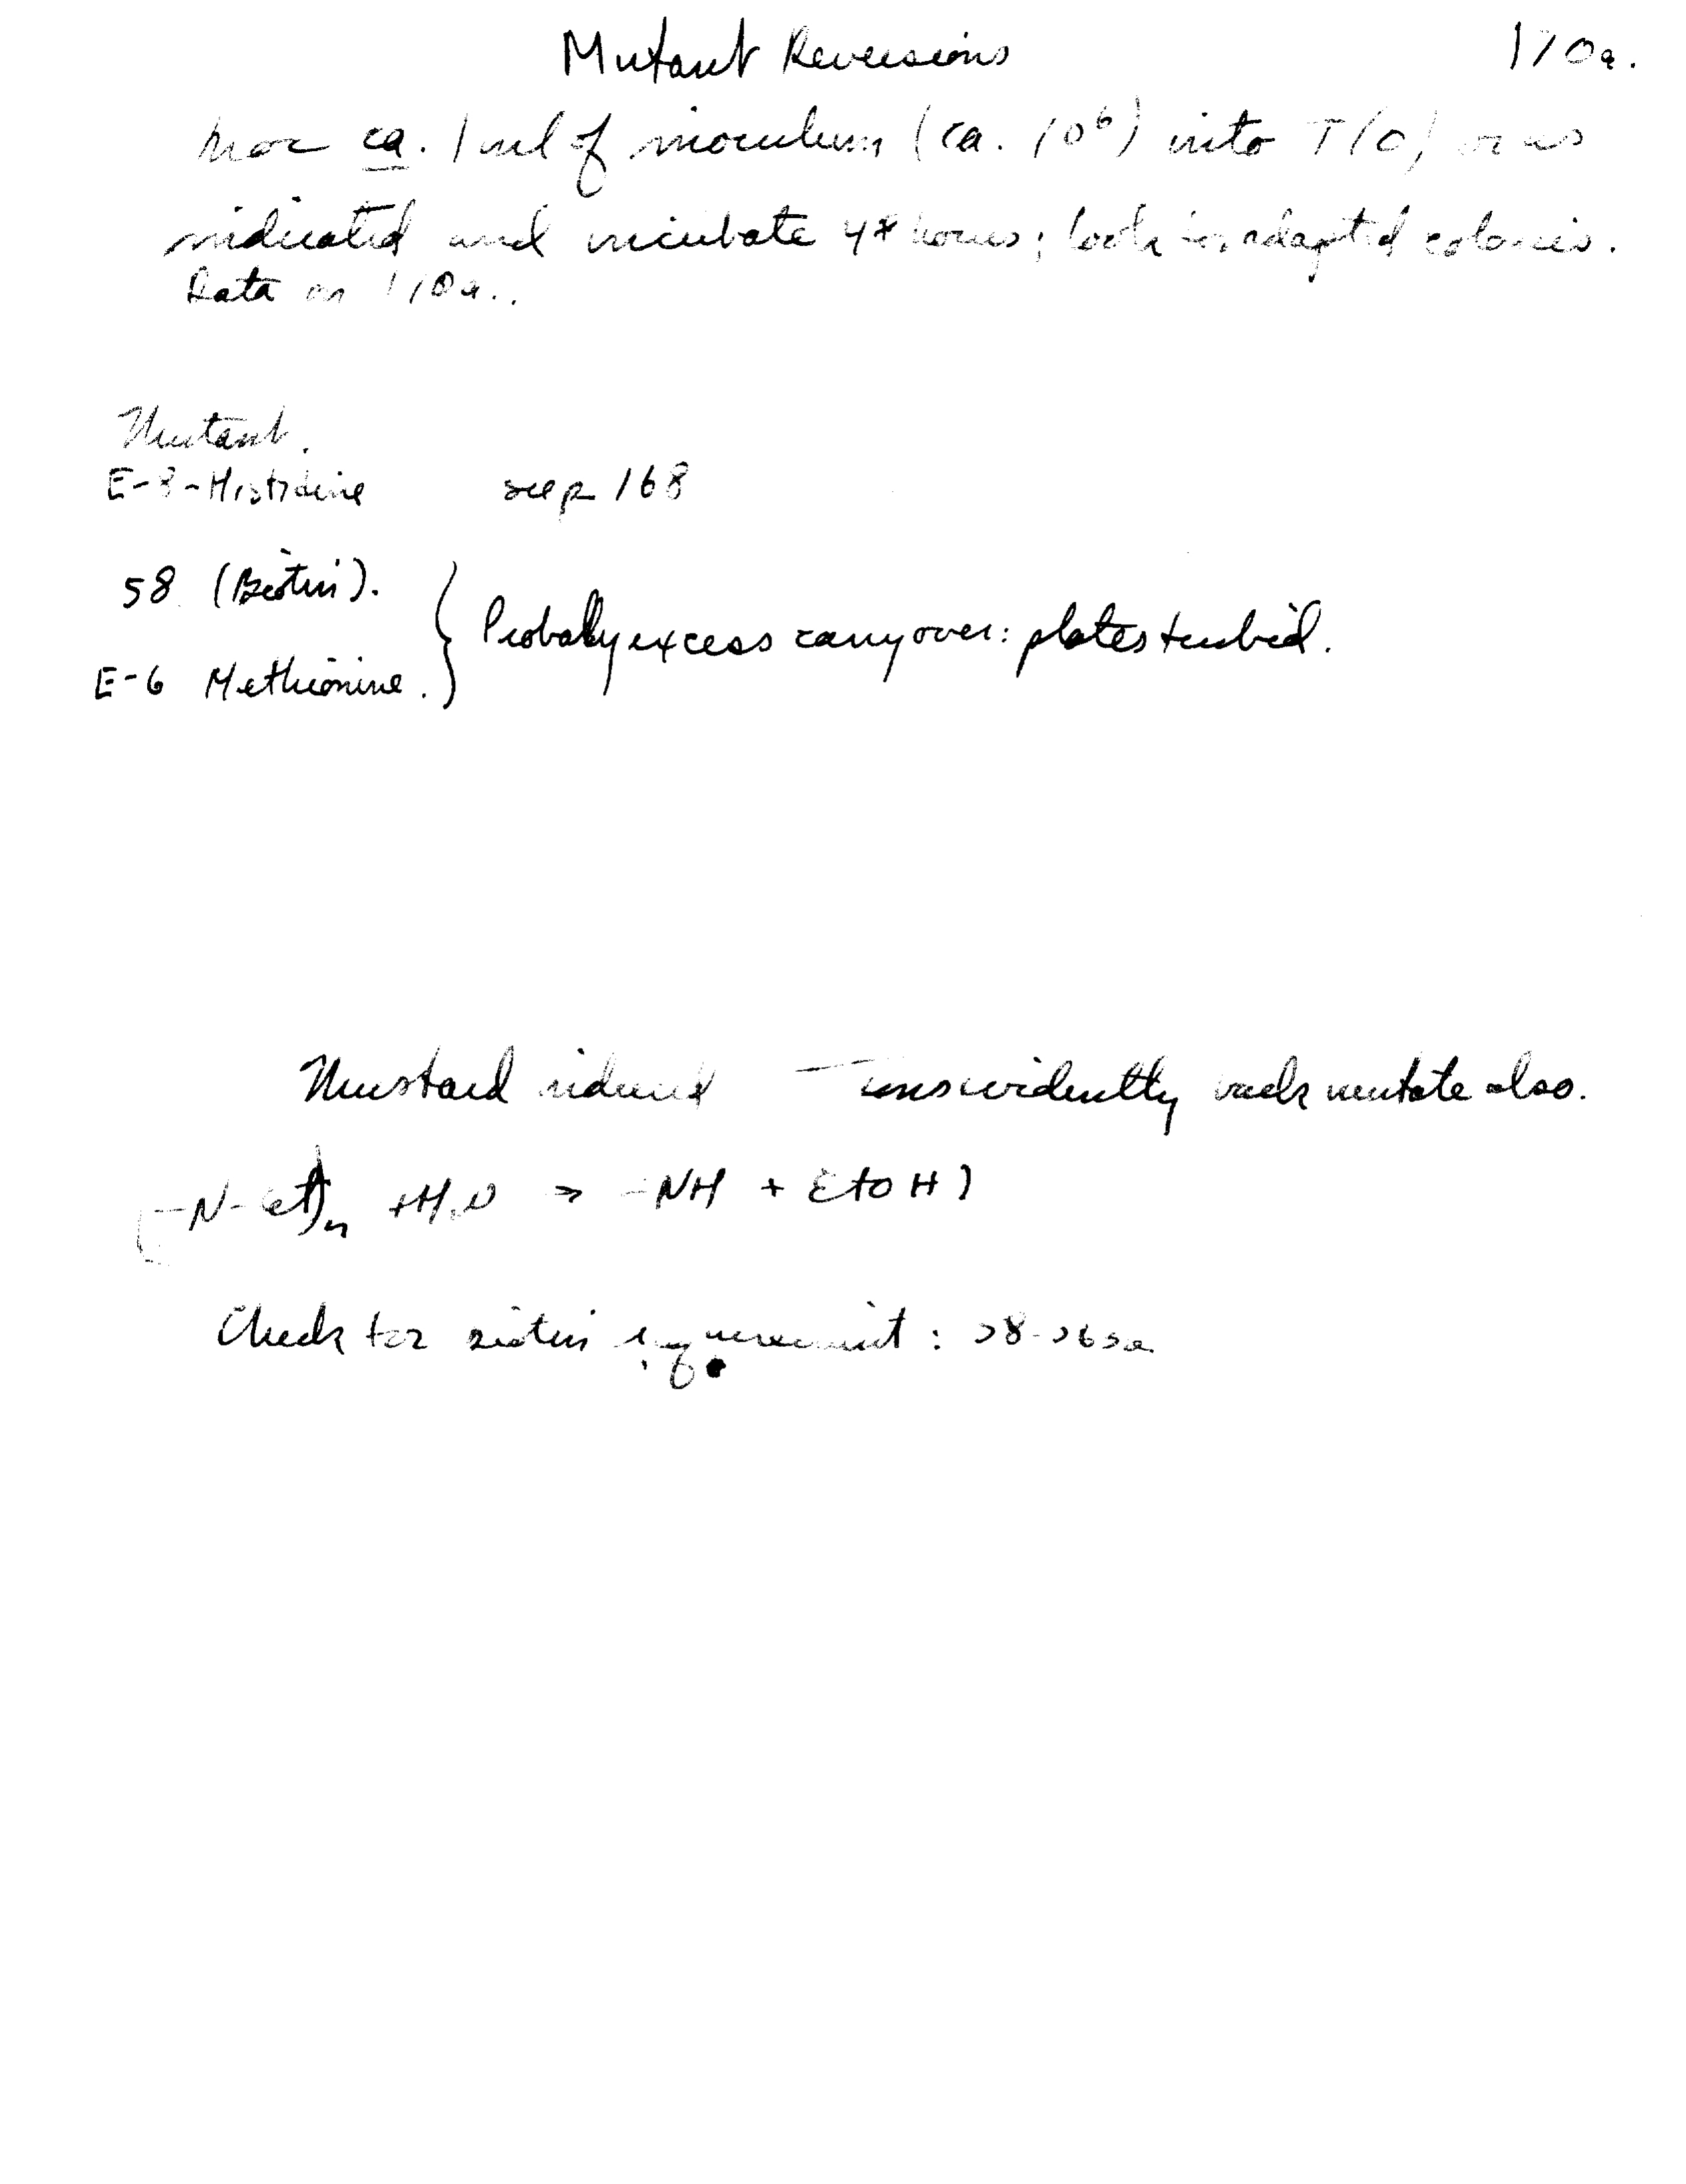 Mutant Reversions 170a.
ca. 1 ml of inoculum (ca. 10⁶) into T(0) or as
indicated and incubate 48 hours; look for adapted colonies.
Data on 170a..
Mutant.
E-8-Histidine see p 168
58 (Biotin).
Probably excess carryover: plates turbid.
E-6 Methionine.
Mustard induced evidently back mutate also.
(-N-et)n +H2O → -NH + EtOH)
Check for biotin requirement: 58-